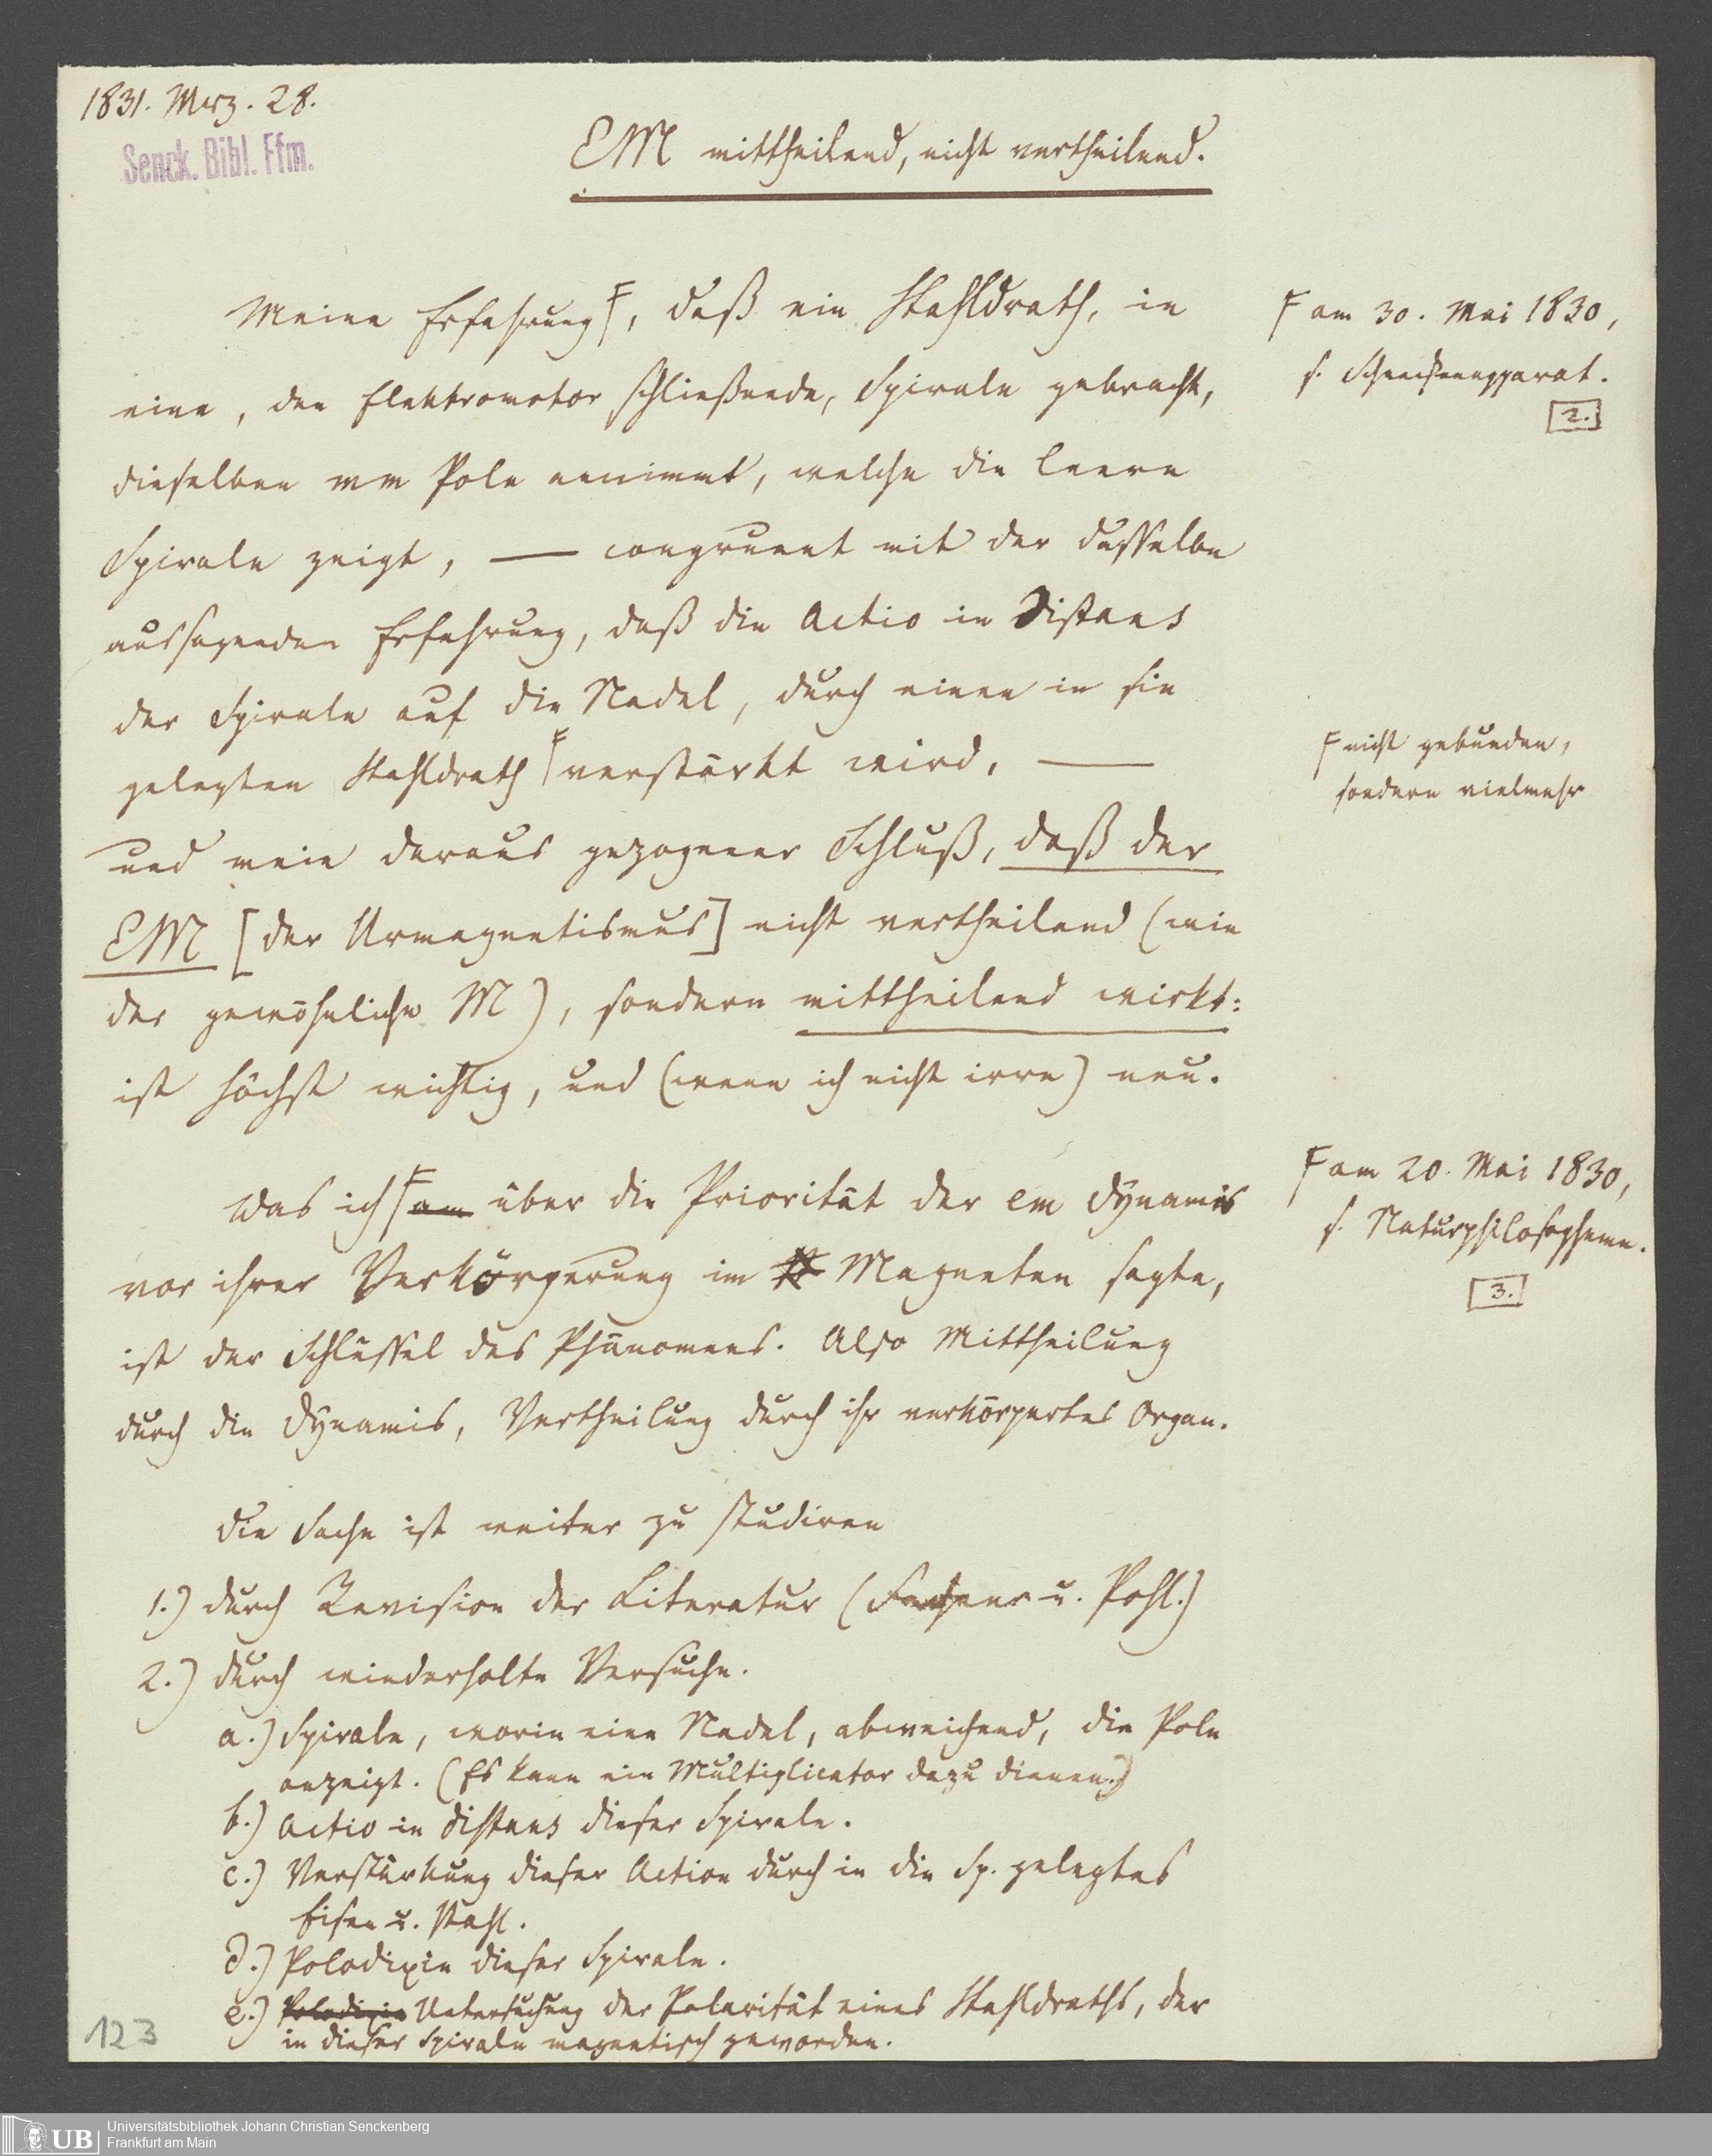 1831. Merz. 28.
Senck. Bibl. Ffm.
EM mittheilend, nicht vertheilend.
Meine Erfahrung F, daß ein Stahldrath, in
eine, den Elektromotor schließende, Spirale gebracht,
dieselben em Pole annimmt, welche die leere
Spirale zeigt, — congruent mit der dasselbe
aussagenden Erfahrung, daß die Actio in Distans
der Spirale auf die Nadel, durch einen in sie
gelegten Stahldrath F verstärkt wird, —
und mein daraus gezogener Schluß, daß der
EM [der Urmagnetismus] nicht vertheilend (wie
der gewöhnliche M), sondern mittheilend wirkt:
ist höchst wichtig, und (wenn ich nicht irre) neu.
Was ich F am über die Priorität der em Dynamis
vor ihrer Verkörperung im Magneten sagte,
ist der Schlüssel des Phänomens. Also Mittheilung
durch die Dynamis, Vertheilung durch ihr verkörpertes Organ.
Die Sache ist weiter zu studiren
1.) durch Revision der Literatur (Fechner u. Pohl.)
2.) durch wiederholte Versuche.
a.) Spirale, worin eine Nadel, abweichend, die Pole
anzeigt. (Es kann ein Multiplicator dazu dienen.)
b.) Actio in distans dieser Spirale.
c.) Verstärkung dieser Action durch in die Sp. gelegtes
Eisen u. Stahl.
d.) Polodixie dieser Spirale.
e.) Polodixie Untersuchung der Polarität eines Stahldraths, der
in dieser Spirale magnetisch geworden.
F am 30. Mai 1830,
s. Schneckenapparat.
2.
F nicht gebunden,
sondern vielmehr
F am 20. Mai 1830,
s. Naturphilosopheme.
3.
123
UB
Universitätsbibliothek Johann Christian Senckenberg
Frankfurt am Main